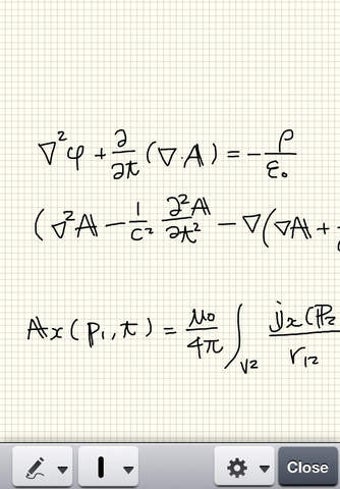 ∇²φ + ∂/∂t (∇·A) = − ρ/ε₀
(∇²A − 1/c² ∂²A/∂t² − ∇(∇A +
Ax(P₁, t) = μ₀/4π ∫V2 jx(P₂ / r₁₂
Close